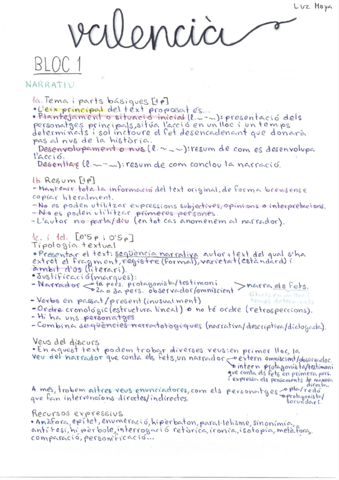 Luz Moya
valencià
BLOC 1
NARRATIU
1a. Tema i parts bàsiques [1p]
• L'eix principal del text proposat és...
• Plantejament o situació inicial (l. ~ - ~): presentació dels
personatges principals, situa l'acció en un lloc i un temps
determinats i sol incloure el fet desencadenant que donarà
pas al nus de la història.
Desenvolupament o nus (l. ~ - ~): resum de com es desenvolupa
l'acció.
Desenllaç (l. ~ - ~): resum de com conclou la narració.
1b. Resum [1p]
• Mantenir tota la informació del text original, de forma breu sense
copiar literalment.
• No es poden utilitzar expressions subjectives, opinions o interpretacions.
• No es poden utilitzar primeres persones.
• L'autor no parla/diu (en tot cas anomenem al narrador).
1c. i 1d. [0'5p i 0'5p]
Tipologia textual
• Presentar el text: seqüència narrativa, autor i text del qual s'ha
extret el fragment, registre (formal), varietat (estàndard) i
àmbit d'ús (literari).
• Justificació (marques):
- Narrador → 1a pers. protagonista/testimoni
→ 2a o 3a pers. observador/omniscient
narra els fets.
- Verbs en passat/present (inusualment)
- Ordre cronològic (estructura lineal) o no té ordre (retrospeccions).
- Hi ha uns personatges
- Combina seqüències narratològiques (narrativa/descriptiva/dialogada).
Veus del discurs
• En aquest text podem trobar diverses veus: en primer lloc, la
veu del narrador que conta els fets, un narrador → extern omniscient/observador.
→ intern protagonista/testimoni
que conta els fets en primera pers.
A més, trobem altres veus enunciadores, com els personatges
que fan intervencions directes/indirectes.
Recursos expressius
• Anàfora, epítet, enumeració, hipèrbaton, paral·lelisme, sinonímia,
antítesi, hipèrbole, interrogació retòrica, ironia, isotopia, metàfora,
comparació, personificació...